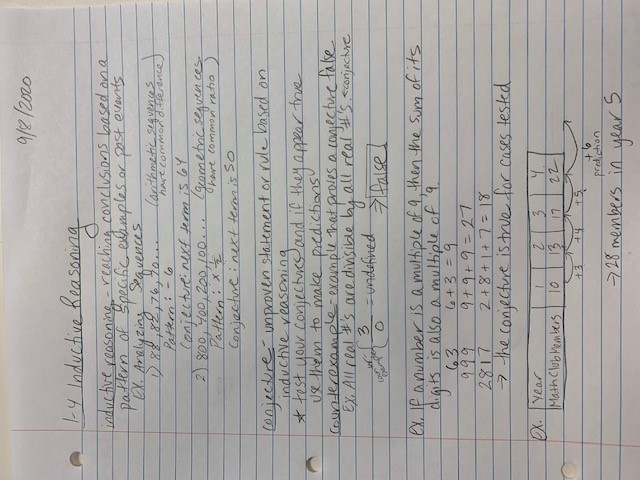 9/8/2020
1-4 Inductive Reasoning
inductive reasoning - reaching conclusions based on a
pattern of specific examples or past events
EX. Analyzing Sequences
1) 88, 82, 76, 70... (arithmetic sequences
have common difference)
Pattern: -6
Conjecture: next term is 64
2) 800, 400, 200, 100... (geometric sequences
have common ratio)
Pattern: x 1/2
Conjecture: next term is 50
conjecture - unproven statement or rule based on
inductive reasoning
* test your conjectures and if they appear true
use them to make predictions
counterexample - example that proves a conjecture false
Ex. All real #'s are divisible by all real #'s. ← conjecture
counter example { 3/0 = undefined ⇒ false
Ex. If a number is a multiple of 9, then the sum of its
digits is also a multiple of 9.
63 6+3=9
999 9+9+9=27
2817 2+8+1+7=18
→ the conjecture is true for cases tested
Ex. Year 1 2 3 4
Math Club Members 10 13 17 22
+3 +4 +5 +6
prediction
→ 28 members in year 5